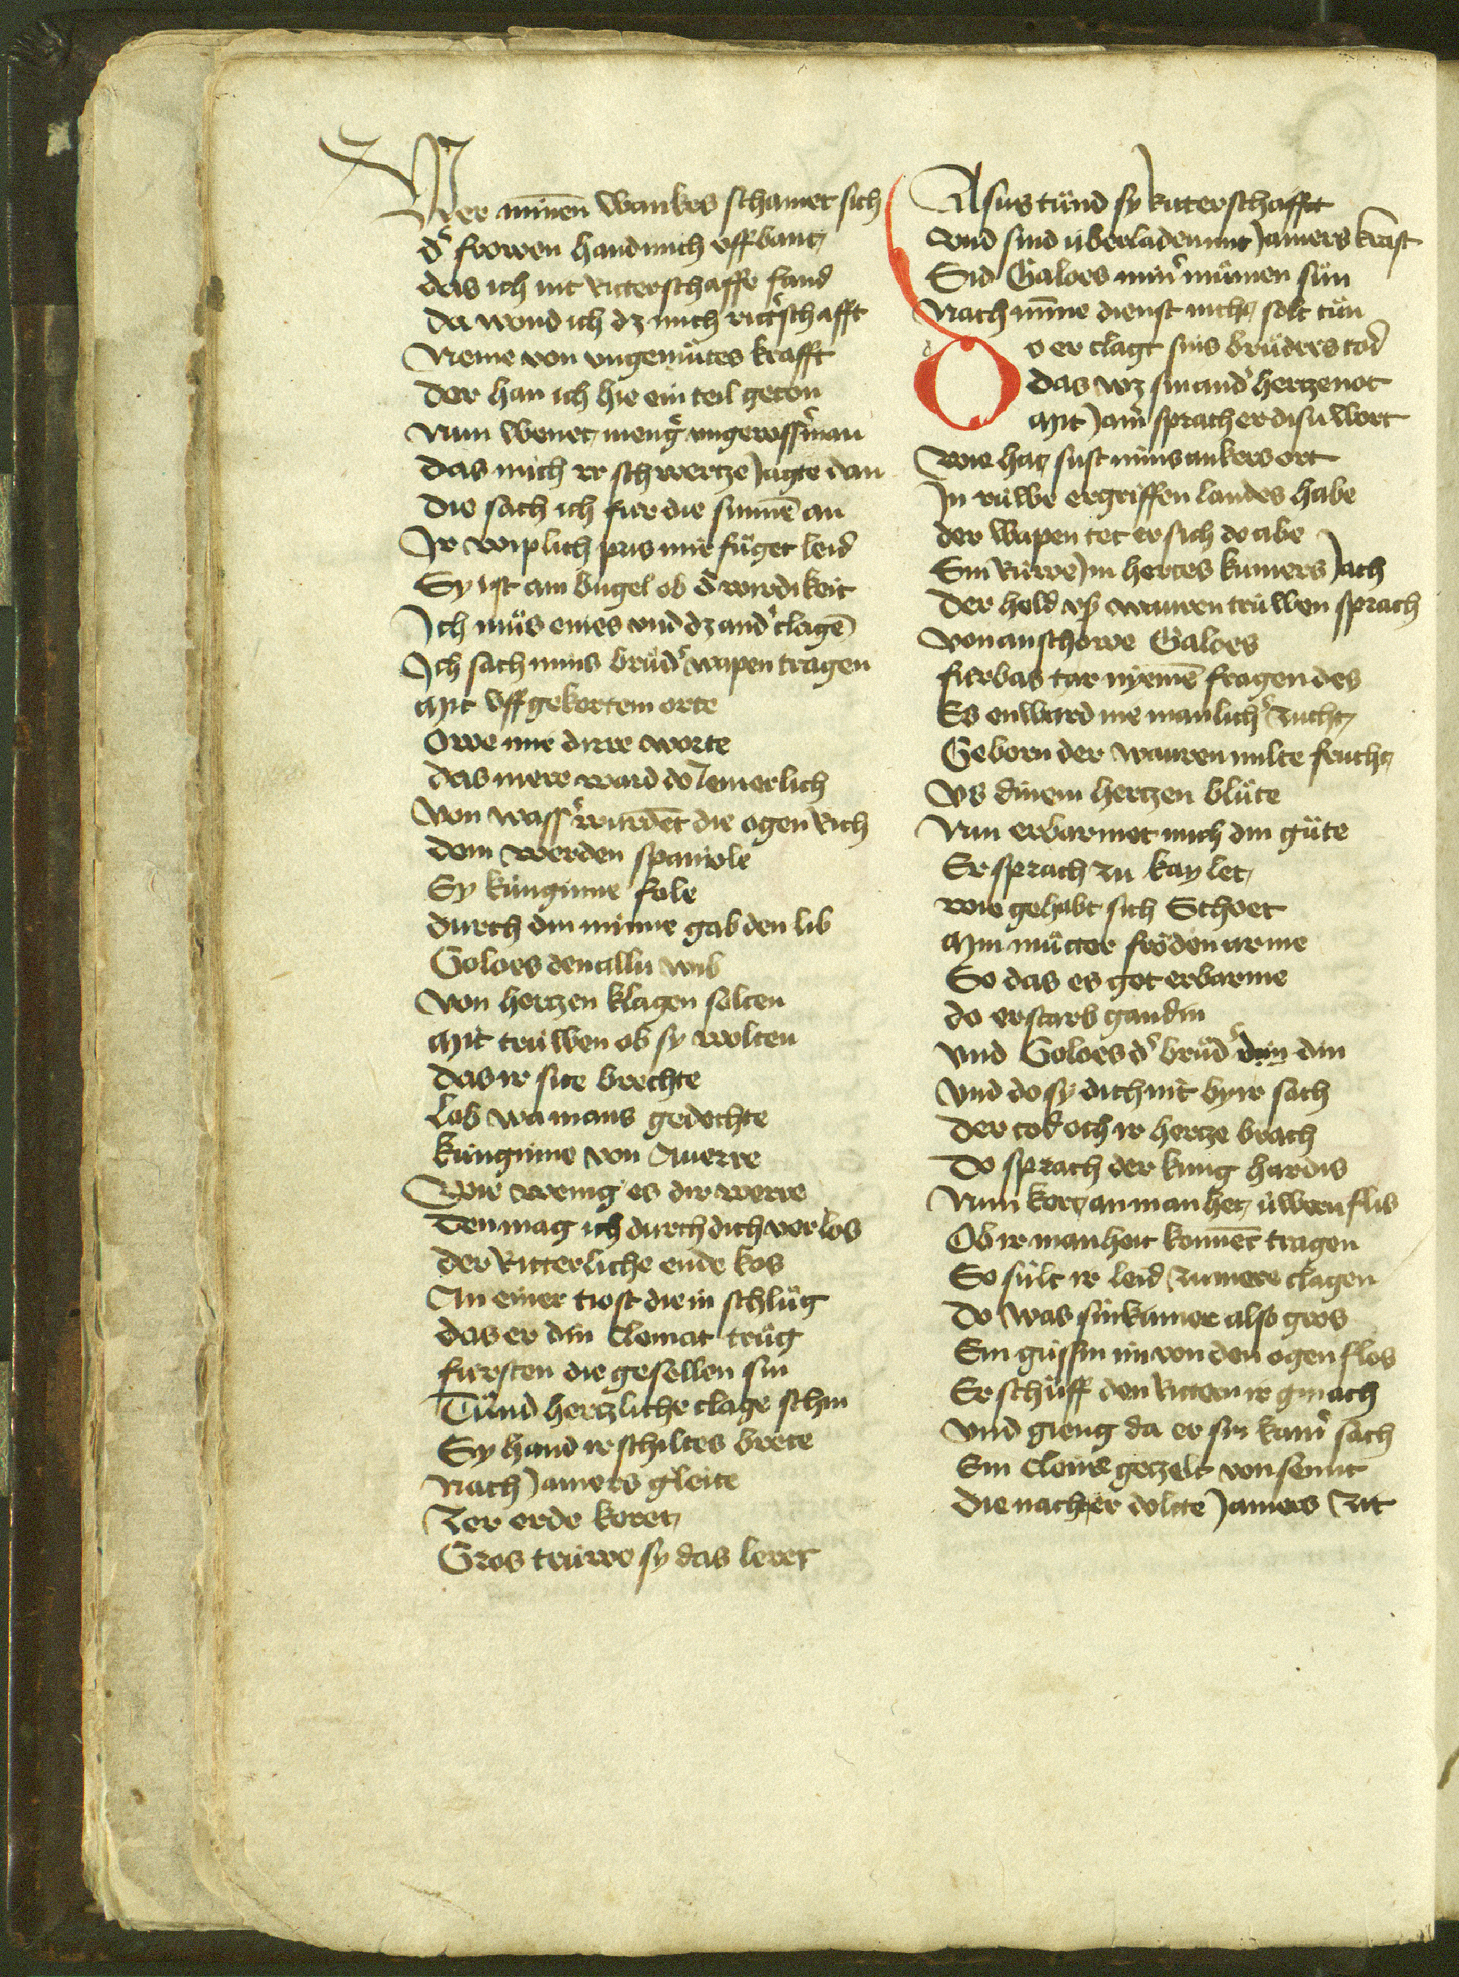 Wer minnen wankes schamet sich
dˢ frowen hand mich vff bant
das ich nit ritterschafft fand
da wond ich dz mich rittˢschafft
Neme von vngemuͤtes krafft
Der han ich hie ein teil geton
Nun wenet mengˢ vngewissˢ man
Das mich ir schwertze Jagte dan
Die sach ich fur die sunnē an
Ir wiplich pris mir fuͤget leid
Sy ist am bugel ob dˢ wirdikeit
Ich muͦs eines vnd dz andˢ clagē
Ich sach mins bruͦdˢ wapen tragen
Mit vff gekertem orte
Owe mir dirre worte
das mere ward do Jemerlich
Von wassˢ wurdēt die ogen Rich
dem werden spaniole
Sy kunginne fole
durch din minne gab den lib
Goloes den allu wib
Von hertzen klagen solten
Mit truwen ob sy wolten
das ir site brechte
Lob wa mans gedechte
kunginne von Auerre
Wie wenig es dir werre
Den mag ich durch dich verlos
der Ritterliche ende kos
An einer tiost die in schluͦg
das er din clomat truͦg
fursten die gesellen sin
Tuͦnd hertzliche clage schin
Sy hand ir schiltes breite
Nach Jamers gleite
Zer erde keret
Gros truwe sy das leret
Alsus tuͦnd sy Ritterschafft
vnd sind uberladen mit Jamers kraft
Sid Galoes minˢ muͦmen suͦn
Nach minne dienst nicht solt tuͦn
Do er clagt sins bruͦders tod
das wz sin andˢ hertzenot
Mit Jamˢ sprach er disu wort
wie hat sust mins ankers ort
In ruwe ergriffen landes habe
der wapen tet er sich do abe
Sin Ruwe Im hertes kumers Jach
der held vß wauren truwen sprach
von anschowe Galoes
furbas tar nyemē fragen des
Es enward nie manlichˢ zucht
Geborn der wauren milte frucht
Vs dinem hertzen bluͤte
Nun erbarmet mich din guͤte
Er sprach zu kaylet
wie gehabt sich Schoet
Min muͦtter froͤden arme
So das es got erbarme
do erstarb gandin
vnd Goloes dˢ bruͦdˢ din
vnd do sy dich nit by ir sach
der tod och ir hertze brach
Do sprach der kung hardis
Nun kert an manheit uwern flis
Ob ir manheit konnēt tragen
So sult ir leid zu mere clagen
Do was sin kumer also gros
Ein gussin im von den ogen flos
Er schuͦff den Rittern ir gmach
vnd gieng da er sin kamˢ sach
Ein cleins gezelt von semit
Die nacht er dolte Jamers zit